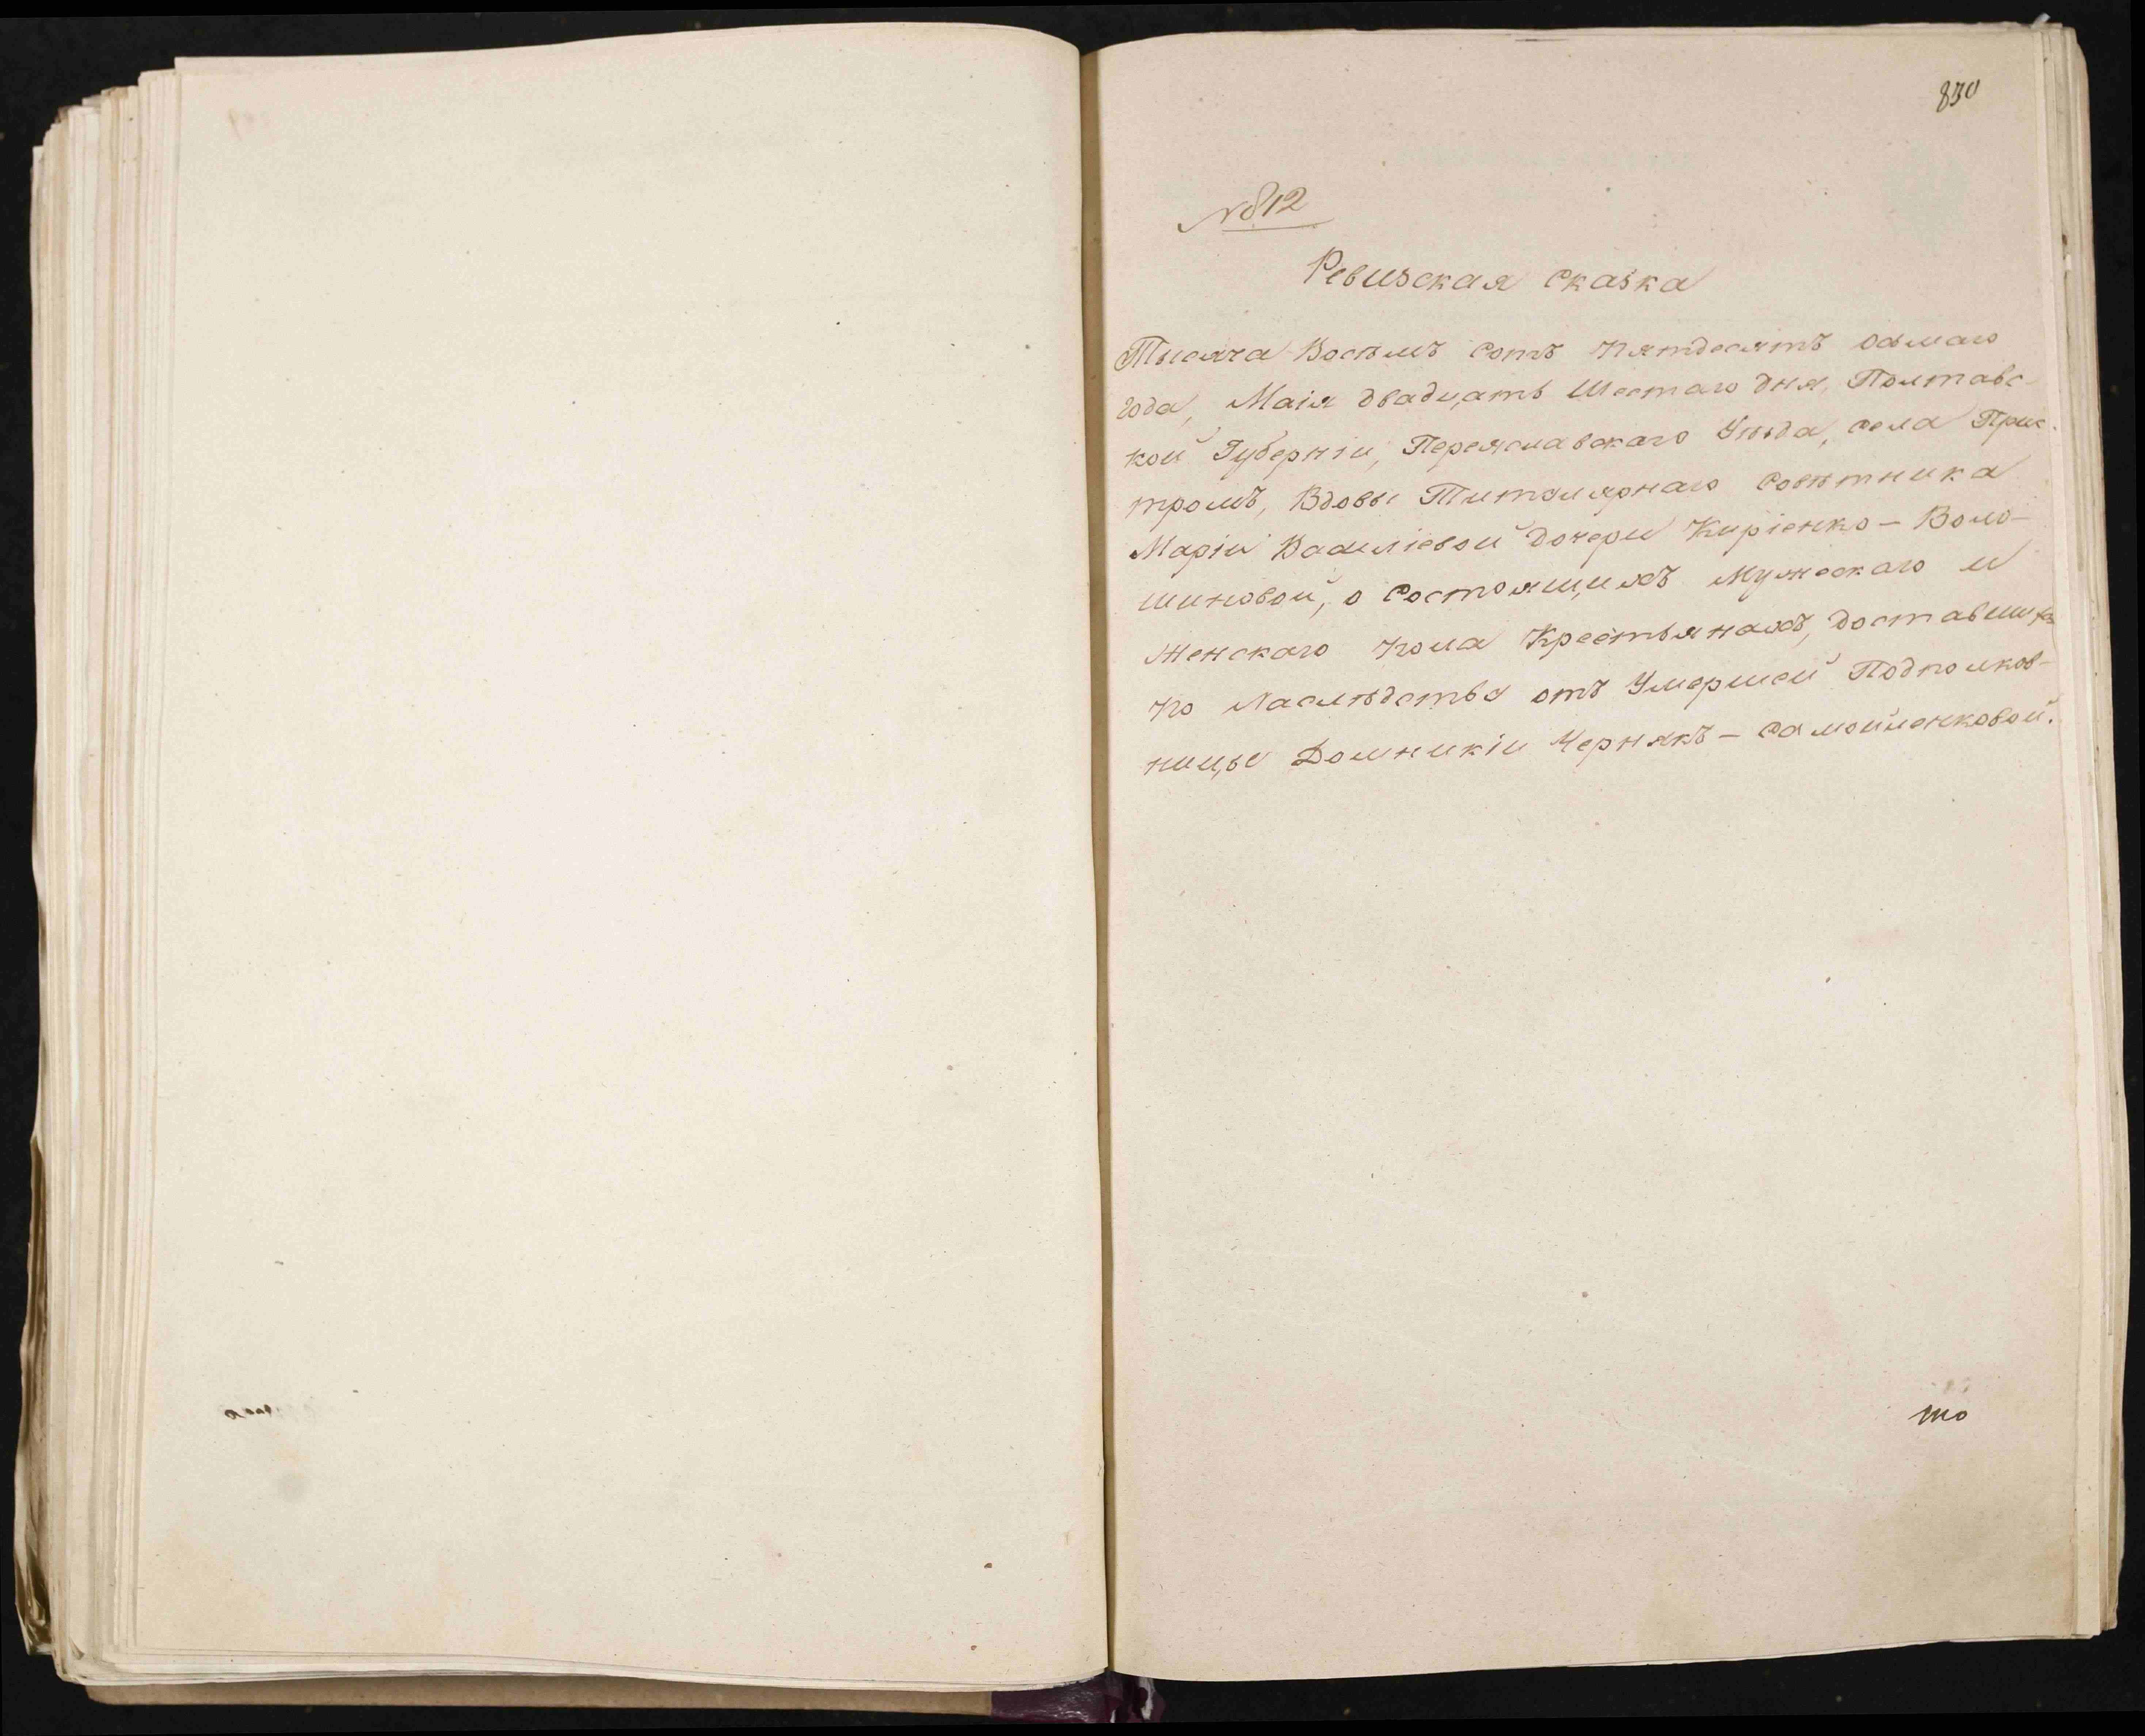 830
№812
Ревизская сказка
Тысяча Восѣмъ сотъ пятдесятъ осьмаго
года, Маія двадцать Шестаго дня, Полтавс-
кой Губерніи, Переяславскаго Уѣзда, села Прис-
тромъ, Вдовы Титулярнаго Совѣтника
Маріи Василіевой дочери Киріенко-Воло-
шиновой, о состоящихъ мужескаго и
женскаго пола Крестьянахъ, доставших
по Наслѣдству отъ Умершей Подполков-
ницы Домникіи Чернякъ-Самойленковой.
то